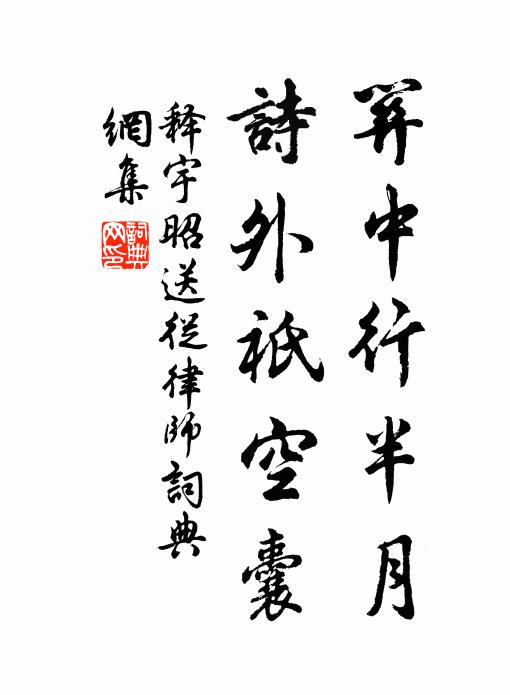 中行半月
詩外祇空囊
釋宇昭送從律師詞典
網集
詞典
网印